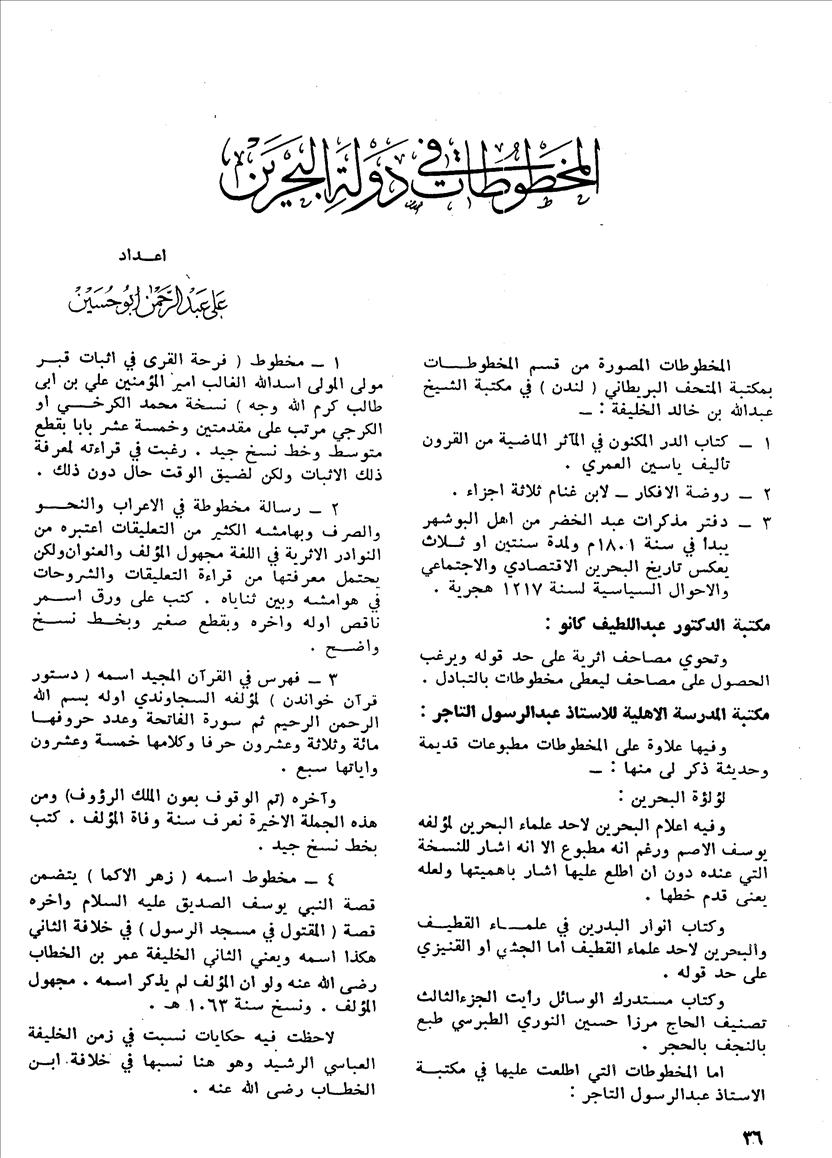 المخطوطات في دولة البحرين
اعـــداد
علي عبد الرحمن ابو حسين
المخطوطات المصورة من قسم المخطوطـــات
بمكتبة المتحف البريطاني ( لندن ) في مكتبة الشيخ
عبدالله بن خالد الخليفة : ــ
١ ــ كتاب الدر المكنون في المآثر الماضية من القرون
تأليف ياسين العمري .
٢ ــ روضة الافكار ــ لابن غنام ثلاثة اجزاء .
٣ ــ دفتر مذكرات عبد الخضر من اهل البوشهر
يبدأ في سنة ١٨٠١م ولمدة سنتين او ثـــلاث
يعكس تاريخ البحرين الاقتصادي والاجتماعي
والاحوال السياسية لسنة ١٢١٧ هجرية .
مكتبة الدكتور عبداللطيف كانو :
وتحوي مصاحف اثرية على حد قوله ويرغب
الحصول على مصاحف ليعطى مخطوطات بالتبادل .
مكتبة المدرسة الاهلية للاستاذ عبدالرسول التاجر :
وفيها علاوة على المخطوطات مطبوعات قديمة
وحديثة ذكر لى منها : ــ
لؤلؤة البحرين :
وفيه اعلام البحرين لاحد علماء البحرين لمؤلفه
يوسف الاصم ورغم انه مطبوع الا انه اشار للنسخة
التي عنده دون ان اطلع عليها اشار باهميتها ولعله
يعنى قدم خطها .
وكتاب انوار البدرين في علمـــاء القطيــف
والبحرين لاحد علماء القطيف اما الجشي او القنيزي
على حد قوله .
وكتاب مستدرك الوسائل رأيت الجزءالثالث
تصنيف الحاج مرزا حسين النوري الطبرسي طبع
بالنجف بالحجر .
اما المخطوطات التي اطلعت عليها في مكتبـــة
الاستاذ عبدالرسول التاجر :
١ ــ مخطوط ( فرحة القرى في اثبات قبـر
مولى المولى اسدالله الغالب امير المؤمنين علي بن ابى
طالب كرم الله وجه ) نسخة محمد الكرخـــي او
الكرجي مرتب على مقدمتين وخمسة عشر بابا بقطع
متوسط وخط نسخ جيد . رغبت في قراءته لمعرفة
ذلك الاثبات ولكن لضيق الوقت حال دون ذلك .
٢ ــ رسالة مخطوطة في الاعراب والنحـــو
والصرف وبهامشه الكثير من التعليقات اعتبره من
النوادر الاثرية في اللغة مجهول المؤلف والعنوان ولكن
يحتمل معرفتها من قراءة التعليقات والشروحات
في هوامشه وبين ثناياه . كتب على ورق اسـمر
ناقص اوله واخره وبقطع صغير وبخـط نســخ
واضـح .
٣ ــ فهرس في القرآن المجيد اسمه ( دستور
قرآن خواندن ) لمؤلفه السجاوندي اوله بسم الله
الرحمن الرحيم ثم سورة الفاتحة وعدد حروفهـا
مائة وثلاثة وعشرون حرفا وكلامها خمسة وعشرون
واياتها سبع .
وآخره (تم الوقوف بعون الملك الرؤوف) ومن
هذه الجملة الاخيرة نعرف سنة وفاة المؤلف . كتب
بخط نسخ جيد .
٤ ــ مخطوط اسمه ( زهر الاكما ) يتضمن
قصة النبي يوسف الصديق عليه السلام واخره
قصة ( المقتول في مسجد الرسول ) في خلافة الثاني
هكذا اسمه ويعني الثاني الخليفة عمر بن الخطاب
رضى الله عنه ولو ان المؤلف لم يذكر اسمه . مجهول
المؤلف . ونسخ سنة ١٠٦٣ هـ .
لاحظت فيه حكايات نسبت في زمن الخليفة
العباسي الرشيد وهو هنا نسبها في خلافة ابــن
الخطـاب رضى الله عنه .
٣٦